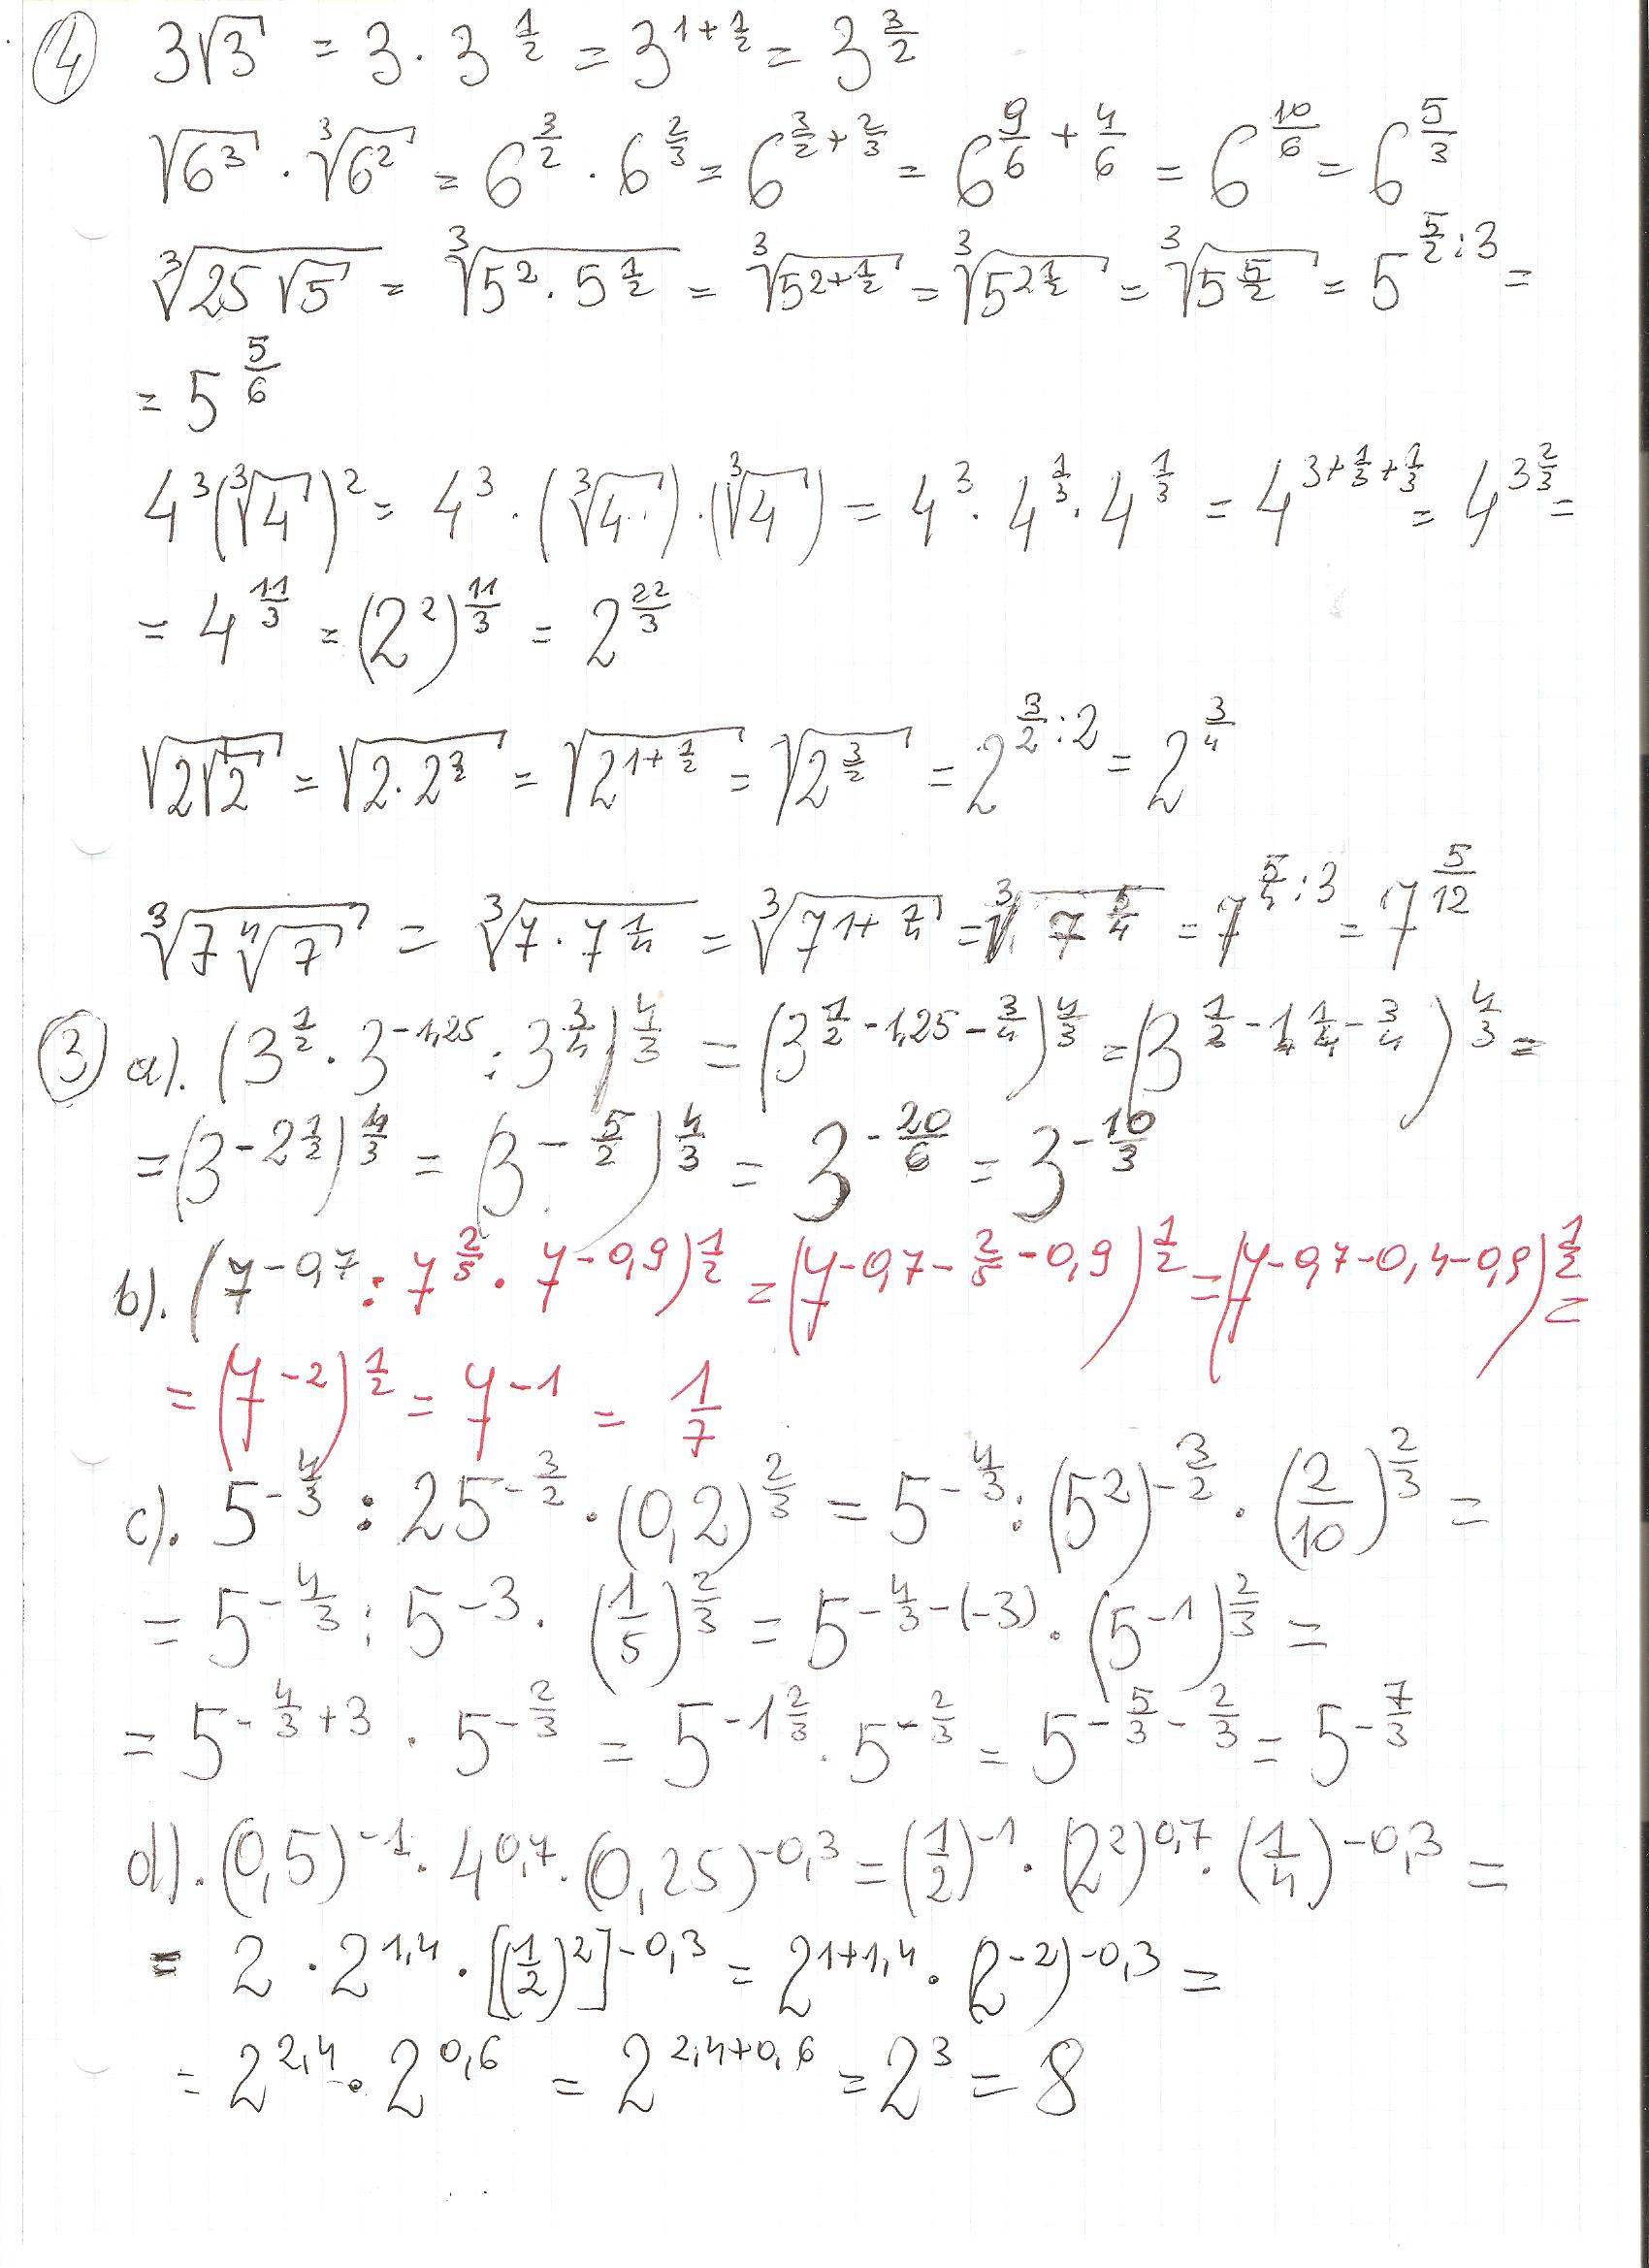 ④ 3√3 = 3 · 3^(1/2) = 3^(1+1/2) = 3^(3/2)
√(6³) · ∛(6²) = 6^(3/2) · 6^(2/3) = 6^(3/2+2/3) = 6^(9/6+4/6) = 6^(10/6) = 6^(5/3)
∛(25√5) = ∛(5² · 5^(1/2)) = ∛(5^(2+1/2)) = ∛(5^(2 1/2)) = ∛(5^(5/2)) = 5^(5/2:3) =
= 5^(5/6)
4³(∛4)² = 4³ · (∛4) · (∛4) = 4³ · 4^(1/3) · 4^(1/3) = 4^(3+1/3+1/3) = 4^(3 2/3) =
= 4^(11/3) = (2²)^(11/3) = 2^(22/3)
√(2√2) = √(2 · 2^(1/2)) = √(2^(1+1/2)) = √(2^(3/2)) = 2^(3/2:2) = 2^(3/4)
∛(7∜7) = ∛(7 · 7^(1/4)) = ∛(7^(1+1/4)) = ∛(7^(5/4)) = 7^(5/4:3) = 7^(5/12)
③ a). (3^(1/2) · 3^(-1,25) : 3^(3/4))^(4/3) = (3^(1/2-1,25-3/4))^(4/3) = (3^(1/2-1 1/4-3/4))^(4/3) =
= (3^(-2 1/2))^(4/3) = (3^(-5/2))^(4/3) = 3^(-20/6) = 3^(-10/3)
b). (7^(-0,7) : 7^(2/5) · 7^(-0,9))^(1/2) = (7^(-0,7-2/5-0,9))^(1/2) = (7^(-0,7-0,4-0,9))^(1/2) =
= (7^(-2))^(1/2) = 7^(-1) = 1/7
c). 5^(-4/3) : 25^(-3/2) · (0,2)^(2/3) = 5^(-4/3) : (5²)^(-3/2) · (2/10)^(2/3) =
= 5^(-4/3) : 5^(-3) · (1/5)^(2/3) = 5^(-4/3-(-3)) · (5^(-1))^(2/3) =
= 5^(-4/3+3) · 5^(-2/3) = 5^(-1 2/3) · 5^(-2/3) = 5^(-5/3-2/3) = 5^(-7/3)
d). (0,5)^(-1) · 4^(0,7) · (0,25)^(-0,3) = (1/2)^(-1) · (2²)^(0,7) · (1/4)^(-0,3) =
= 2 · 2^(1,4) · [(1/2)²]^(-0,3) = 2^(1+1,4) · (2^(-2))^(-0,3) =
= 2^(2,4) · 2^(0,6) = 2^(2,4+0,6) = 2³ = 8